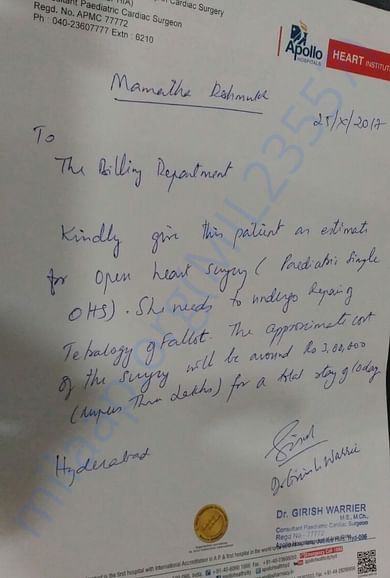 Cardiac Surgery
Consultant Paediatric Cardiac Surgeon
Regd. No. APMC 77772
Ph : 040-23607777 Extn : 6210
Apollo
HOSPITALS
HEART INSTITUT
Mamatha Deshmukh
25/X/2017
To
The Billing Department
Kindly give this patient an estimate
for open heart surgery ( Paediatric Single
OHS). She needs to undergo Repair of
Tetralogy of Fallot. The approximate cost
of the surgery will be around Rs 3,00,000
(rupees Three Lakhs) for a total stay of 10day
Hyderabad
Dr Girish Warrier
Dr. GIRISH WARRIER
M.S., M.Ch.,
Consultant Paediatric Cardiac Surgeon
Regd No - 77772
Apollo Hospitals, Jubilee Hills, Hyd-096
milaap.org